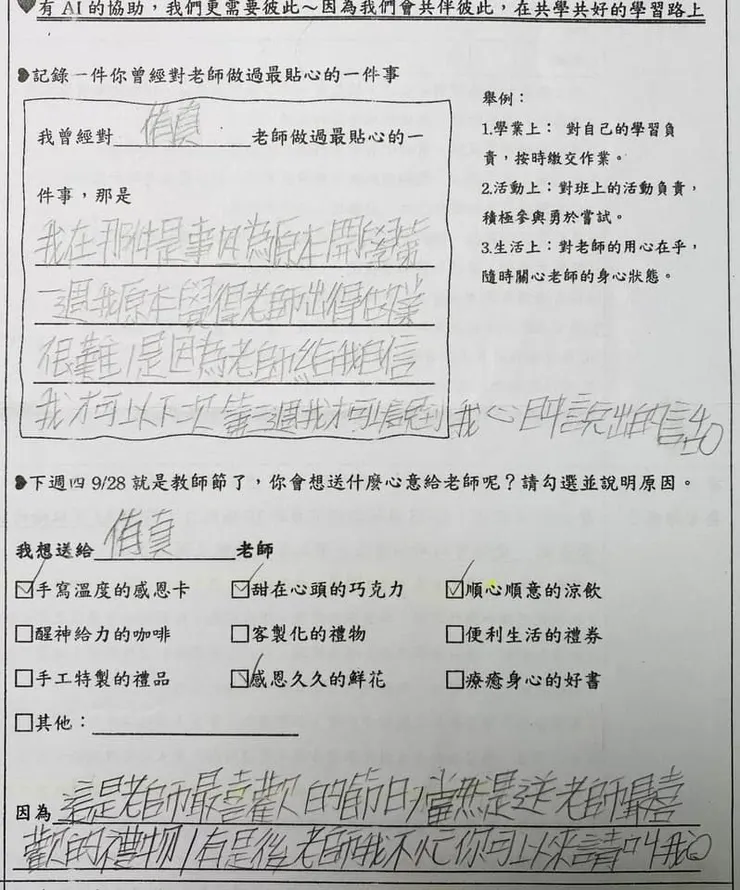 有 AI 的協助，我們更需要彼此～因為我們會共伴彼此，在共學共好的學習路上
記錄一件你曾經對老師做過最貼心的一件事
我曾經對侑真老師做過最貼心的一
件事，那是
我在那件是事因為原本開學第
一週我原本覺得老師出得做業
很難,是因為老師給我自信
我才可以下次第二週我才可以說到我心目說出的話。
舉例：
1.學業上： 對自己的學習負
責，按時繳交作業。
2.活動上：對班上的活動負責，
積極參與勇於嘗試。
3.生活上：對老師的用心在乎，
隨時關心老師的身心狀態。
下週四 9/28 就是教師節了，你會想送什麼心意給老師呢？請勾選並說明原因。
我想送給侑真老師
手寫溫度的感恩卡 甜在心頭的巧克力 順心順意的涼飲
醒神給力的咖啡 客製化的禮物 便利生活的禮券
手工特製的禮品 感恩久久的鮮花 療癒身心的好書
其他：
因為這是老師最喜歡的節日,當然是送老師最喜
歡的禮物,有是後老師我不忙你可以來請叫我。